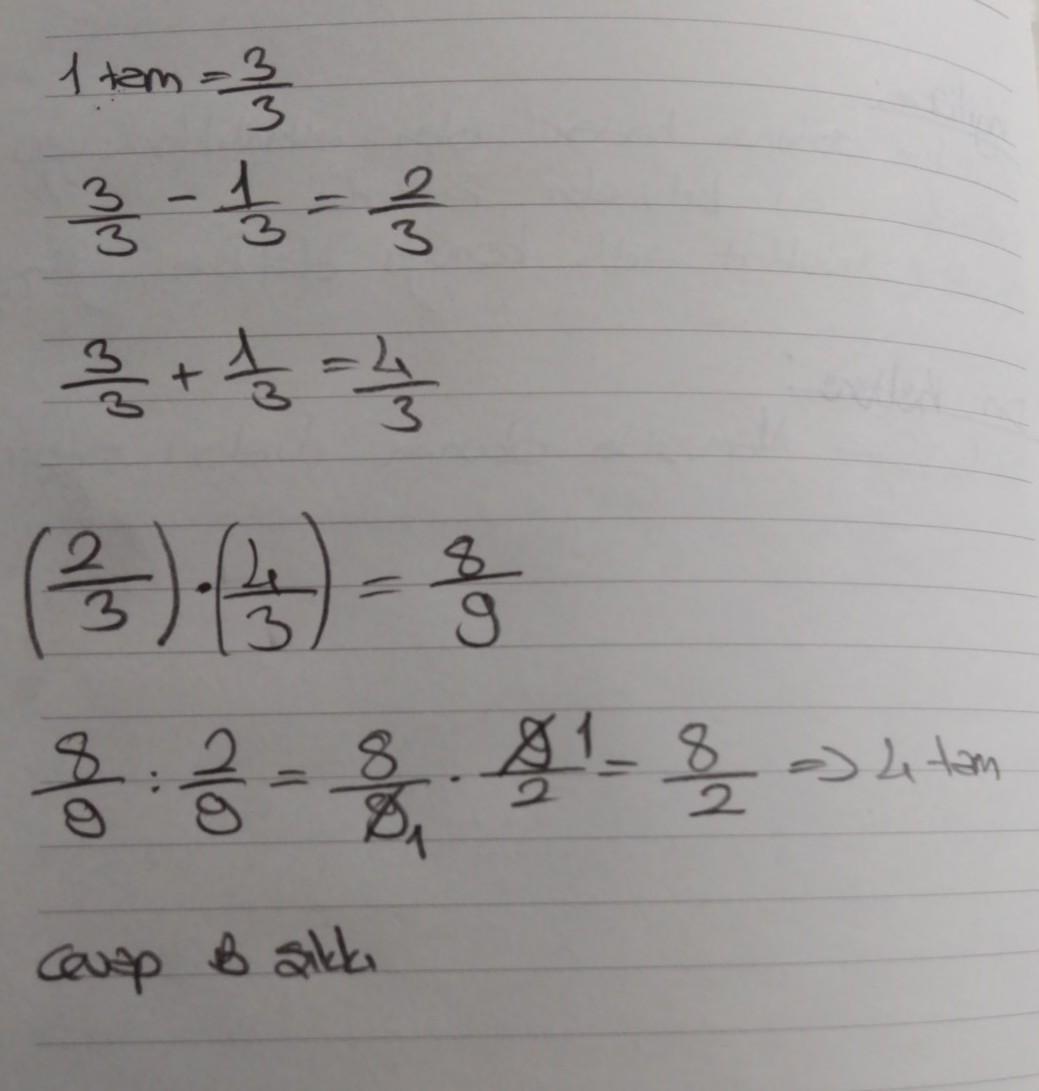 1 tam = 3/3
3/3 - 1/3 = 2/3
3/3 + 1/3 = 4/3
(2/3) · (4/3) = 8/9
8/9 : 2/9 = 8/9 1 · 9/2 1 = 8/2 => 4 tam
cevap B şıkkı